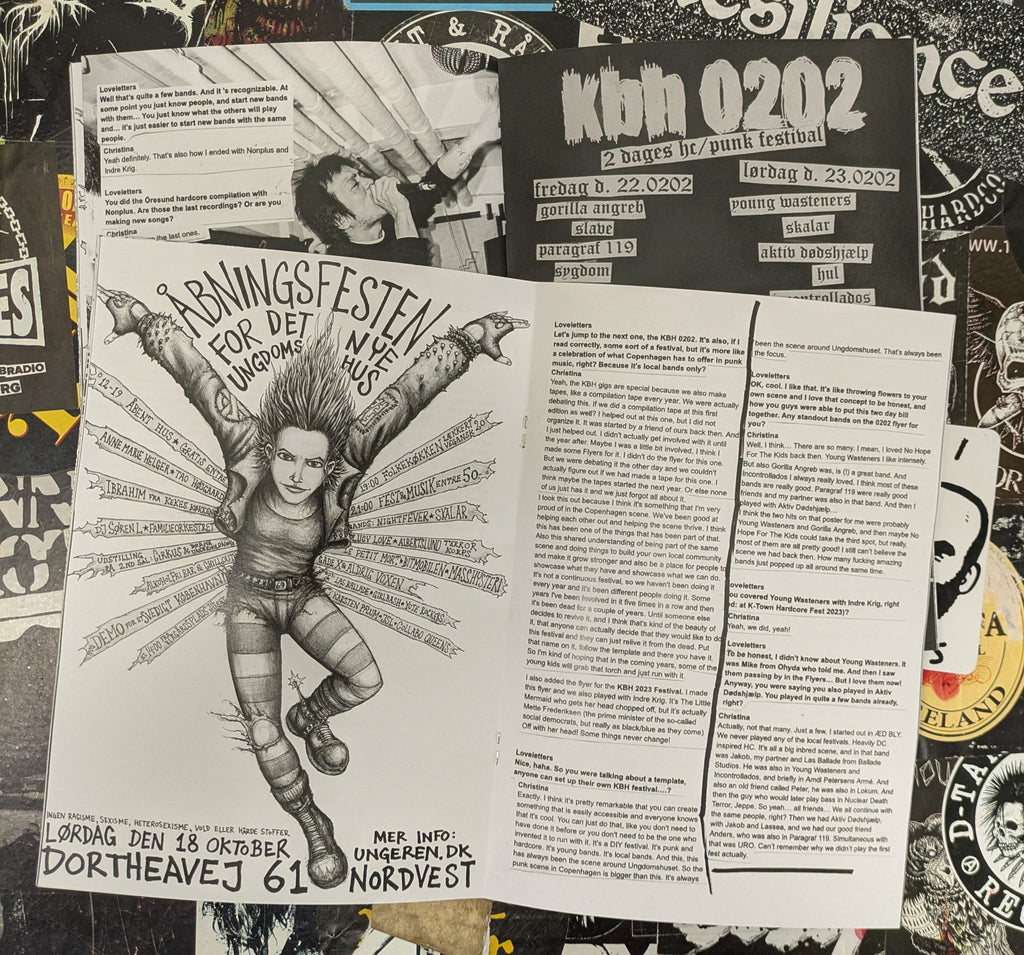 Loveletters
Well that's quite a few bands. And it's recognizable. At
some point you just know people, and start new bands
with them... You just know what the others will play
and... it's just easier to start new bands with the same
people.
Christina
Yeah definitely. That's also how I ended with Nonplus and
Indre Krig.
Loveletters
You did the Öresund hardcore compilation with
Nonplus. Are those the last recordings? Or are you
making new songs?
Christina
the last ones.
Kbh 0202
2 dages hc/punk festival
fredag d. 22.0202
gorilla angreb
slave
paragraf 119
sygdom
lørdag d. 23.0202
young wasteners
skalar
aktiv dødshjælp
hul
ÅBNINGSFESTEN
FOR DET NYE
UNGDOMS HUS
12-19
ÅBENT HUS * GRATIS ENTRÉ
ANNE MARIE HELGER * TAO HØJGAARD
IBRAHIM FRA KEKES KØKKEN
DJ SØREN L * FAMILIEORKESTRET
UDSTILLING
PÅ 2ND SAL: CIRKUS &
ALKOHOLFRI BAR &
DEMO FOR ØSVENDIGT KØBENHAVN
14:00
FOLKEKØKKEN LÆKKERT VEGANER 20,-
21:00 FEST & MUSIK ENTRE 50,-
BANDS: NIGHTFEVER * SVALAR
LUSY LOVE * ALBERTSLUND TERROR KORPS
LE PETIT MORT * BITMOBILEN * MASSHYSTERI
ALDRIG VOXEN
GULBASH * YUTE BACKERS
KARSTEN PFLUM * JSL * COLLABO QUEENS
INGEN RACISME, SEXISME, HETEROSEXISME, VOLD ELLER HÅRDE STOFFER.
LØRDAG DEN 18 OKTOBER
DORTHEAVEJ 61
MER INFO:
UNGEREN.DK
NORDVEST
Loveletters
Let's jump to the next one, the KBH 0202. It's also, if I
read correctly, some sort of a festival, but it's more like
a celebration of what Copenhagen has to offer in punk
music, right? Because it's local bands only?
Christina
Yeah, the KBH gigs are special because we also make
tapes, like a compilation tape every year. We were actually
debating this. If we did a compilation tape at this first
edition as well? I helped out at this one, but I did not
organize it. It was started by a friend of ours back then. And
I just helped out. I didn't actually get involved with it until
the year after. Maybe I was a little bit involved. I think I
made some Flyers for it. I didn't do the flyer for this one.
But we were debating it the other day and we couldn't
actually figure out if we had made a tape for this one. I
think maybe the tapes started the next year. Or else none
of us just has it and we just forgot all about it.
I took this out because I think it's something that I'm very
proud of in the Copenhagen scene. We've been good at
helping each other out and helping the scene thrive. I think
this has been one of the things that has been part of that.
Also this shared understanding of being part of the same
scene and doing things to build your own local community
and make it grow stronger and also be a place for people to
showcase what they have and showcase what we can do.
It's not a continuous festival, so we haven't been doing it
every year and it's been different people doing it. Some
years I've been Involved in it five times in a row and then
it's been dead for a couple of years. Until someone else
decides to revive it, and I think that's kind of the beauty of
it, that anyone can actually decide that they would like to do
this festival and they can just relive it from the dead. Put
that name on it, follow the template and there you have it.
So I'm kind of hoping that in the coming years, some of the
young kids will grab that torch and just run with it.
I also added the flyer for the KBH 2023 Festival. I made
this flyer and we also played with Indre Krig. It's The Little
Mermaid who gets her head chopped off, but it's actually
Mette Frederiksen (the prime minister of the so-called
social democrats, but really as black/blue as they come)
Off with her head! Some things never change!
Loveletters
Nice, haha. So you were talking about a template,
anyone can set up their own KBH festival....?
Christina
Exactly. I think it's pretty remarkable that you can create
something that is easily accessible and everyone knows
that it's cool. You can just do that, like you don't need to
have done it before or you don't need to be the one who
invented it to run with it. It's a DIY festival. It's punk and
hardcore. It's young bands. It's local bands. And this, this
has always been the scene around Ungdomshuset. So the
punk scene in Copenhagen is bigger than this. It's always
been the scene around Ungdomshuset. That's always been
the focus.
Loveletters
OK, cool. I like that. It's like throwing flowers to your
own scene and I love that concept to be honest, and
how you guys were able to put this two day bill
together. Any standout bands on the 0202 flyer for
you?
Christina
Well, I think... There are so many. I mean, I loved No Hope
For The Kids back then. Young Wasteners I like intensely.
But also Gorilla Angreb was, is (!) a great band. And
Incontrollados I always really loved. I think most of these
bands are really good. Paragraf 119 were really good
friends and my partner was also in that band. And then I
played with Aktiv Dødshjælp...
I think the two hits on that poster for me were probably
Young Wasteners and Gorilla Angreb, and then maybe No
Hope For The Kids could take the third spot, but really,
most of them are all pretty good! I still can't believe the
scene we had back then. How many fucking amazing
bands just popped up all around the same time.
oveletters
ou covered Young Wasteners with Indre Krig, right
ed: at K-Town Hardcore Fest 2023)?
Christina
Yeah, we did, yeah!
Loveletters
To be honest, I didn't know about Young Wasteners. It
was Mike from Ohyda who told me. And then I saw
them passing by in the Flyers... But I love them now!
Anyway, you were saying you also played in Aktiv
Dødshjælp. You played in quite a few bands already,
right?
Christina
Actually, not that many. Just a few. I started out in ÆD BLY.
We never played any of the local festivals. Heavily DC
inspired HC. It's all a big inbred scene, and in that band
was Jakob, my partner and Las Ballade from Ballade
Studios. He was also in Young Wasteners and
Incontrollados, and briefly in Amdi Petersens Armé. And
also an old friend called Peter, he was also in Lokum. And
then the guy who would later play bass in Nuclear Death
Terror, Jeppe. So yeah... all friends... We all continue with
the same people, right? Then we had Aktiv Dødshjælp,
with Jakob and Lassea, and we had our good friend
Anders, who was also in Paragraf 119. Simultaneous with
that was URO. Can't remember why we didn't play the first
fest actually.
HARDCO
ELAND
D-TA
RE